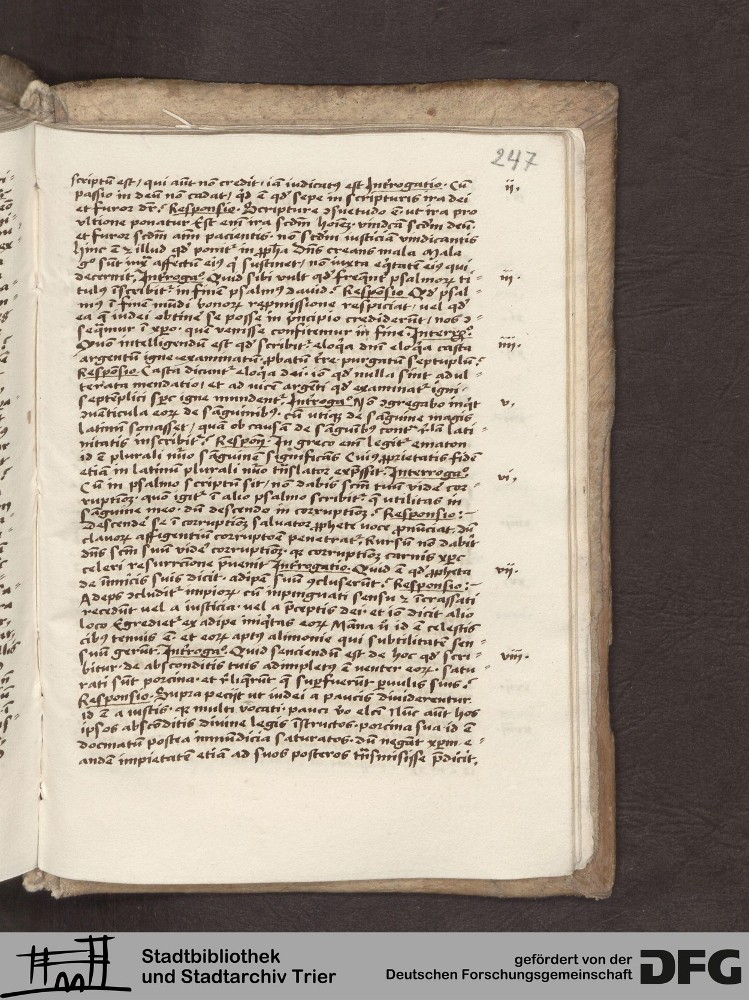 247
scriptū est / qui aūt nō credit / iā iudicatꝰ est Introgatio. Cū ii.
passio in deū nō cadat / qd ē qd sepe in scripturis ira dei
et furor dr̄. Responsio. Scripture ɔsuetudo ē ut ira pro
ultione ponatur. Est em̄ ira scdm̄
et furor scdm̄ pacientis. nō scdm̄ iusticiā vindicantis
hinc ē ⁊ illud qd ponit᷑ in ꝓpha Dn̄s creans mala. Mala
go sunt iux̄ affectū eiꝰ q̄ sustinet / nō iuxta eq̄tatē eiꝰ qui
decernit. Introga. Quid sibi vult qd freqn̄t psalmoꝝ ti⸗ iii.
tulꝰ īscribit᷑ in finē psalmꝰ dauid. Responsio. Qd psal⸗
mꝰ ī finē mūdi bonoꝝ repmissione respiciat / vel qd
ea q̄ iudei obtine se posse in p̄ncipio crediderūt / nos ɔ⸗
seqmur ī xp̄o. quē venisse confitemur in fine. Interro.
Quō intelligendū est qd scribit᷑. eloq̄a dn̄i eloq̄a casta iiii.
argentū igne examinatū. ꝓbatū tr̄e purgatū septuplū.
Responsio. Casta dicunt᷑ eloq̄a dei. iō qd nulla sint adul⸗
terata mendatio / et ad uicē argēti qd examinat᷑ igni⸗
septēplici sp̄c igne mundent᷑. Introga. Nō ɔgregabo inqt v.
ɔuēticula eoꝝ de sāguinibꝰ. cū utiq; de sāguine magis
latinū sonasset / quā ob causā de sāguibꝰ cont᷑ lati⸗
nitatis inscribit᷑. Respon. In greco em̄ legit᷑ ematon
id ē plurali nūo sāguinē significās Cuiꝰ ꝓprietatis fidē
etiā in latinū plurali nūo trāslator exp̄ssit. Interroga.
Cū in psalmo scriptū sit / nō dabis scm̄ tuū videre cor⸗ vi.
ruptionē. quō igit᷑ ī alio psalmo scribit᷑. q̄ utilitas in
sāguine meo. dū descendo in corruptionē. Responsio:⸗
Descende se ī corruptionē saluator ꝓphete voce p̄nūciat. dū
clauoꝝ affigentiū corruptoē penetrat᷑. Rursū nō dabit
dn̄s scm̄ suū videre corruptionē. qꝛ corruptionē carnis xp̄c
celeri resurrectione p̄uenit. Introgatio. Quid ē qd ꝓpheta vii.
de inimicis suis dicit. adipē suū ɔcluserūt. Responsio:⸗
Adeps ɔcludit᷑ impioꝝ cū impinguati sensu ⁊ īcrassati
recedūt vel a iusticia. vel a p̄ceptis dei. et iō dicit alio
loco Egrediet᷑ ex adipe iniq̄tas eoꝝ Māna v̄o id ē celestis
cibꝰ tenuis ē et eoꝝ aptꝰ alimonie qui subtilitatē sen⸗
suū gerūt. Introga. Quid senciendū est de hoc qd scri⸗ viii.
bitur. de absconditis tuis adimpletꝰ ē venter eoꝝ. satu⸗
rati sūt porcina. et reliqrūt q̄ supfuerūt puulis suis.
Responsio. Supra peciit ut iudei a paucis diuiderentur.
id ē a iustis. qꝛ multi vocati. pauci v̄o elcī Nūc aūt hos
ipsos absconditis diuine legis īstructos. porcina sua. id ē
docmatū postea īmūdicia saturatos. dū negāt xp̄m. e⸗
andē impietatē etiā ad suos posteros trāsmisisse p̄dicit.
Stadtbibliothek
und Stadtarchiv Trier
gefördert von der
Deutschen Forschungsgemeinschaft
DFG